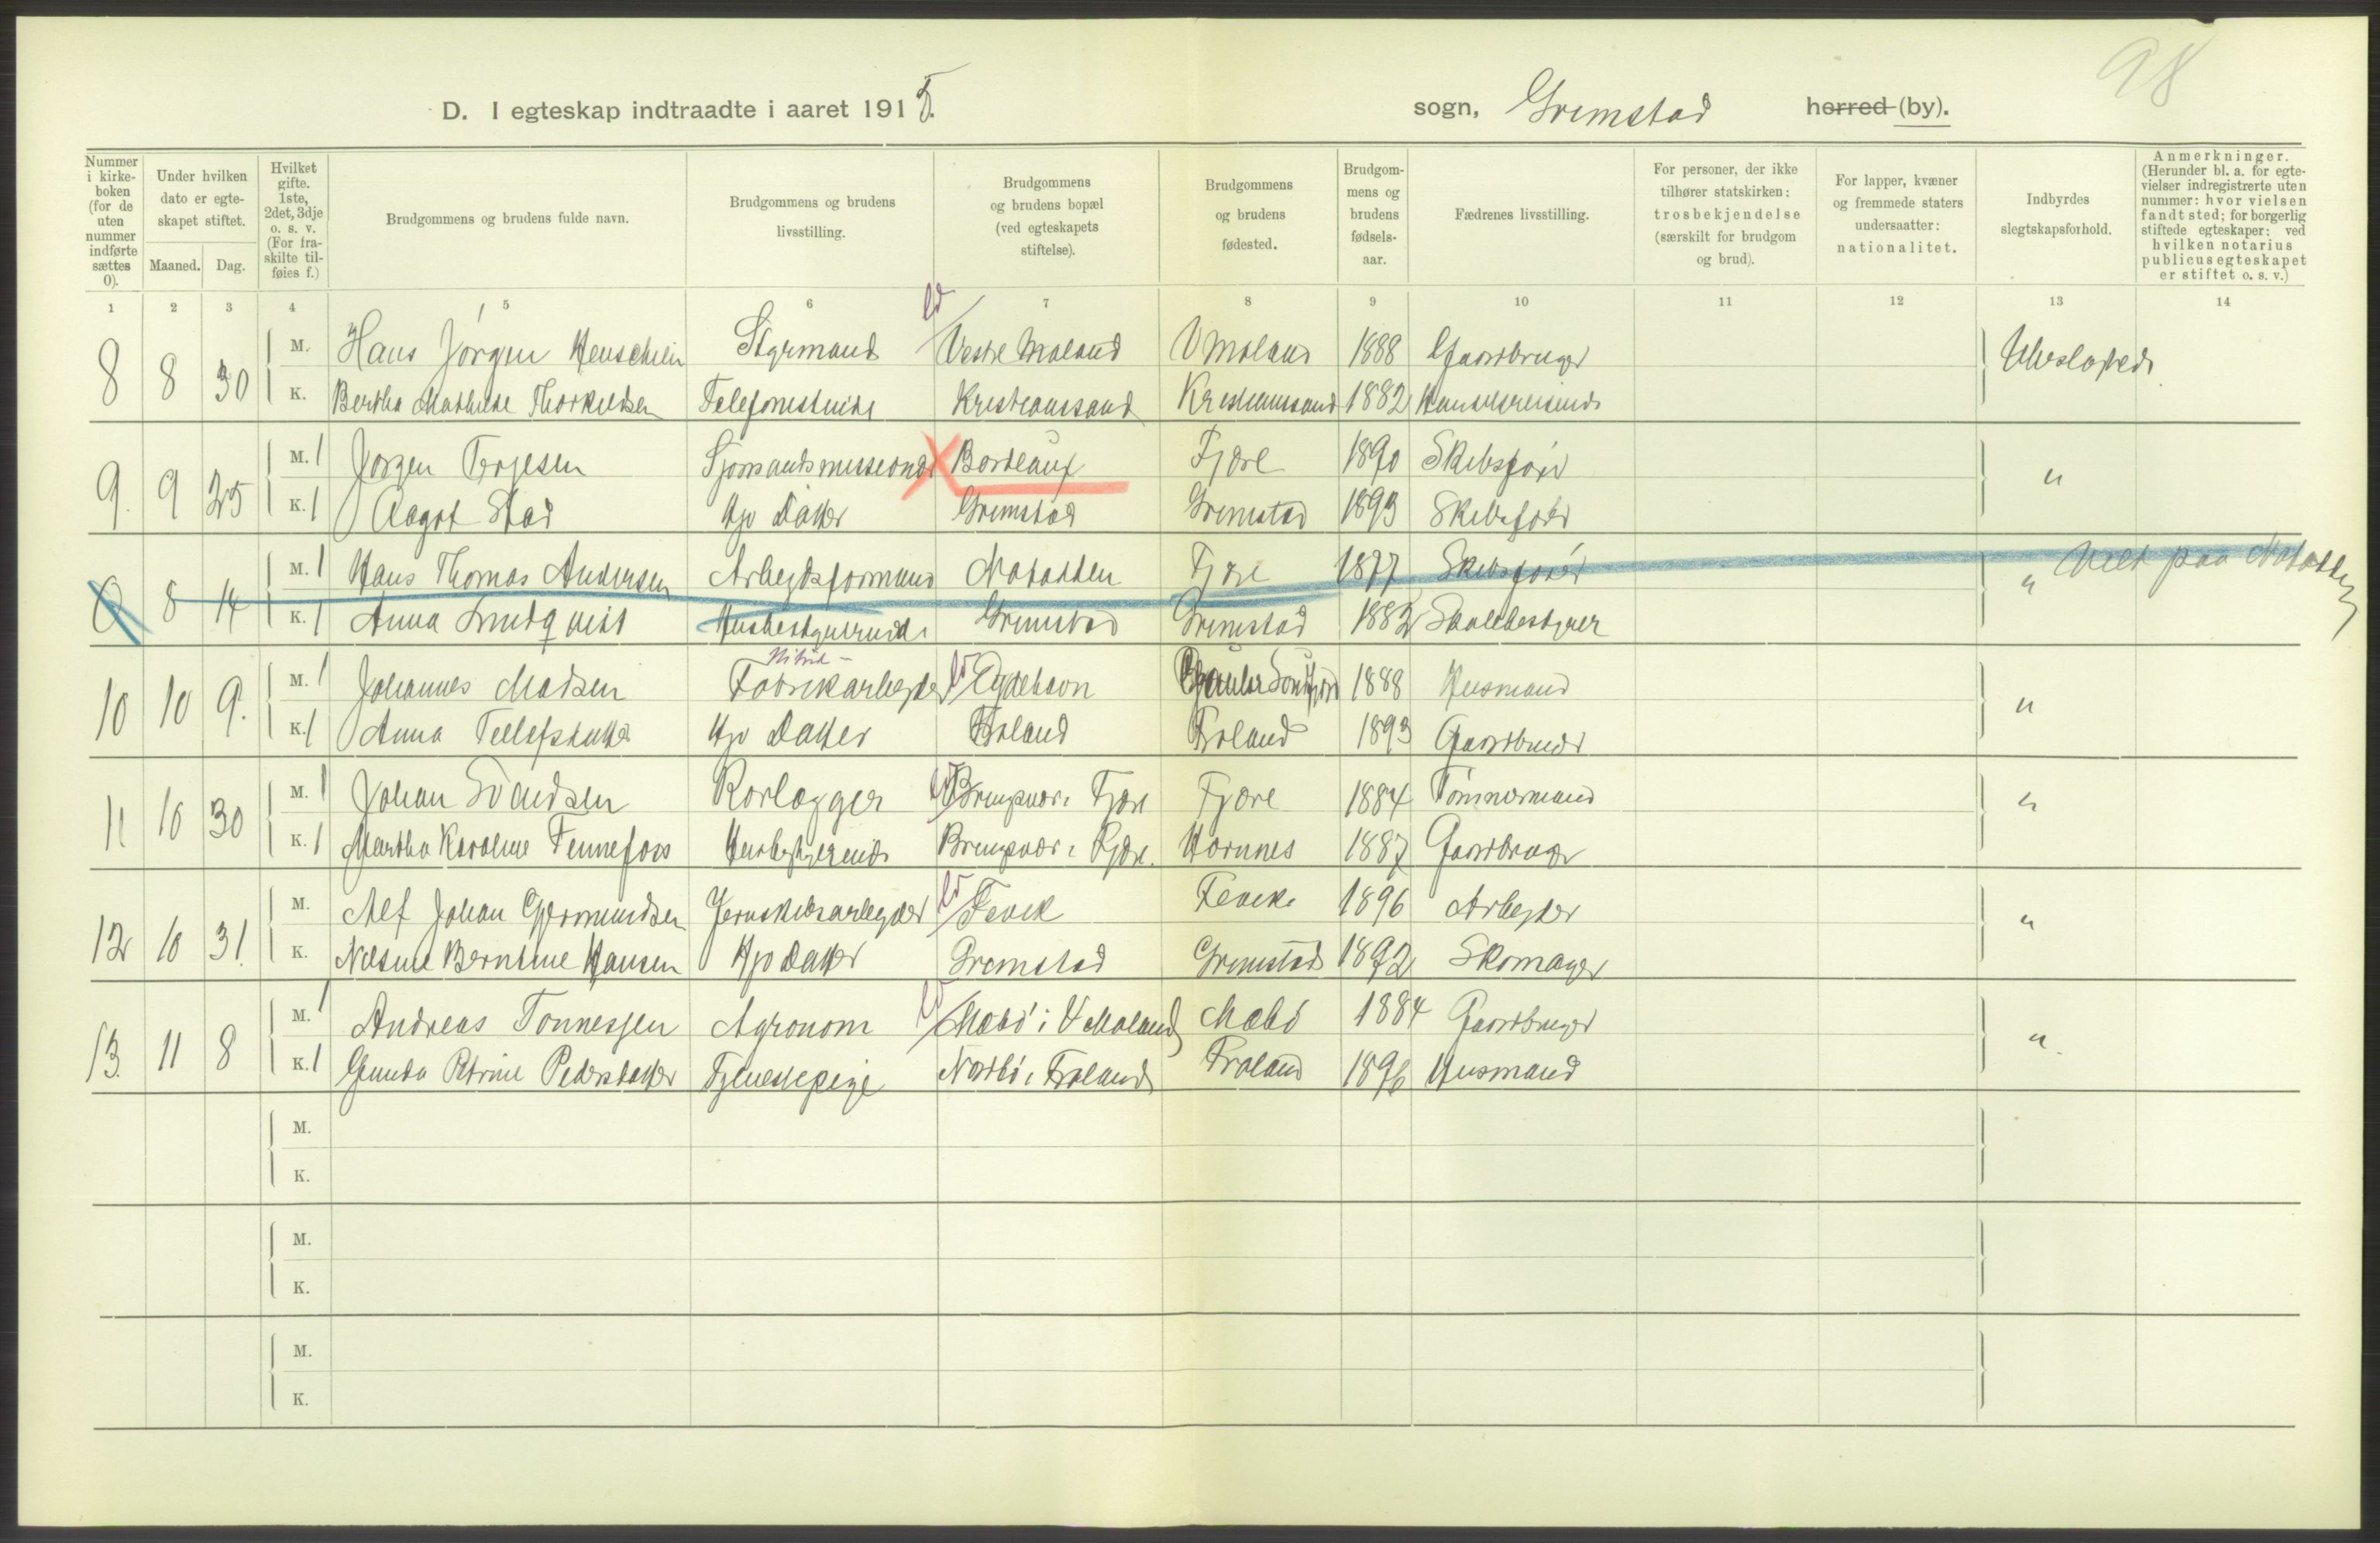 98
D. I egteskap indtraadte i aaret 1915. sogn, Grimstad herred (by).
Nummer i kirkeboken (for de uten nummer indførte sættes 0).
Under hvilken dato er egteskapet stiftet.
Maaned. Dag.
Hvilket gifte. 1ste, 2det, 3dje o. s. v. (For fraskilte tilføies f.)
Brudgommens og brudens fulde navn.
Brudgommens og brudens livsstilling.
Brudgommens og brudens bopæl (ved egteskapets stiftelse).
Brudgommens og brudens fødested.
Brudgommens og brudens fødselsaar.
Fædrenes livsstilling.
For personer, der ikke tilhører statskirken: trosbekjendelse (særskilt for brudgom og brud).
For lapper, kvæner og fremmede staters undersaatter: nationalitet.
Indbyrdes slegtskapsforhold.
Anmerkninger. (Herunder bl. a. for egtevielser indregistrerte uten nummer: hvor vielsen fandt sted; for borgerlig stiftede egteskaper: ved hvilken notarius publicus egteskapet er stiftet o. s. v.)
1 2 3 4 5 6 7 8 9 10 11 12 13 14
8 8 30 M. Hans Jörgen Styrmand Vestre Moland V Moland 1888 Gaardbruger Ubeslægted
K. Bertha Mathilde Thorkildsen Telefonistinde Kristianssand Kristianssand 1882 Handelsreisende
9. 9 25 M. 1 Jörgen Terjesen Sjömandsmissionær Bordeaux Fjære 1890 Skibsfører "
K. 1 Aagot Stad Hjv Datter Grimstad Grimstad 1893 Skibsfører
0 8 14 M. 1 Hans Thomas Andersen Arbejdsformand Notodden Fjære 1877 Skibsförer " Viet paa Notodden
K. 1 Anna Lindqvist Husbestyrerinde Grimstad Grimstad 1882 Skolebestyrer
10 10 9. M. 1 Johannes Madsen Fabrikarbeyder Eydehavn Søndfjord 1888 Husmand "
K. 1 Anna Tellefsdatter Hjv Datter Froland Froland 1893 Gaardbruger
11 10 30 M. 1 Johan Svendsen Rörlægger Bringsvær i Fjære Fjære 1884 Tömmermand "
K. 1 Martha Karoline Fennefoss Husbestyrerinde Bringsvær i Fjære. Hornnes 1887 Gaardbruger
12 10 31. M. Alf Johan Gjermundsen Jernskibsarbeyder Fevik Fevik 1896 Arbeyder "
K. Nilsine Berntine Hansen Hjv Datter Grimstad Grimstad 1892 Skomager
13. 11 8 M. 1 Andreas Tönnessen Agronom Mæbö i V Moland Mæbö 1884 Gaardbruger "
K. 1 Gunda Petrine Pedersdatter Tjenestepige i Froland Froland 1896 Husmand
M.
K.
M.
K.
M.
K.